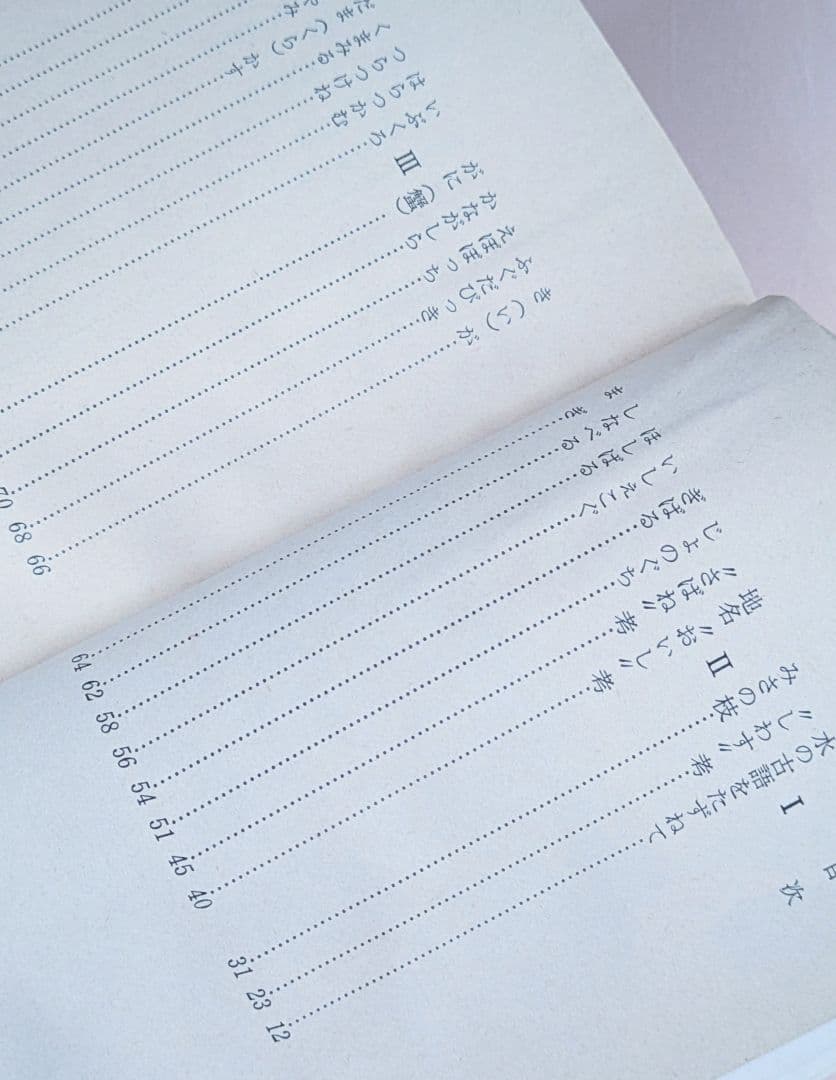 次
I
水の古語をたずねて 12
〃しわす〃考 23
みさの枝 31
II
地名〃おいし〃考 40
〃さばね〃考 45
じょのくち 51
ぎばる 54
いしえこぐ 56
ほしばる 58
しなべる 62
まぎ 64
き(い)が 66
ふぐだびっき 68
えぼぼっち 70
かながしら
がに(蟹)
III
いぶくろ
はらつかむ
つらつけね
くまみる